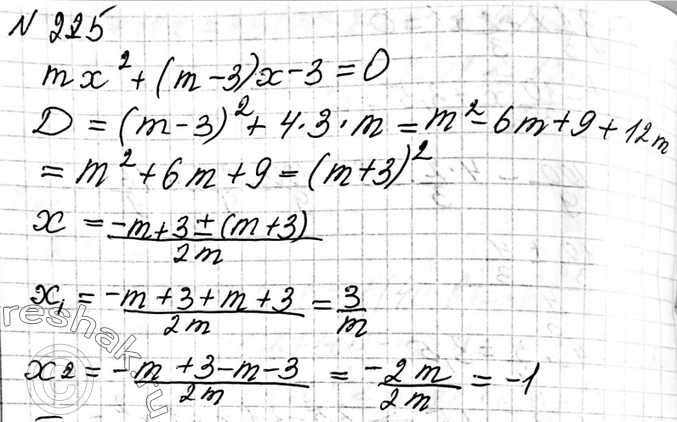 № 225
mx² + (m - 3)x - 3 = 0
D = (m - 3)² + 4·3·m = m² - 6m + 9 + 12m
= m² + 6m + 9 = (m + 3)²
x = (-m + 3 ± (m + 3)) / 2m
x₁ = (-m + 3 + m + 3) / 2m = 3/m
x₂ = (-m + 3 - m - 3) / 2m = -2m / 2m = -1
reshak.ru